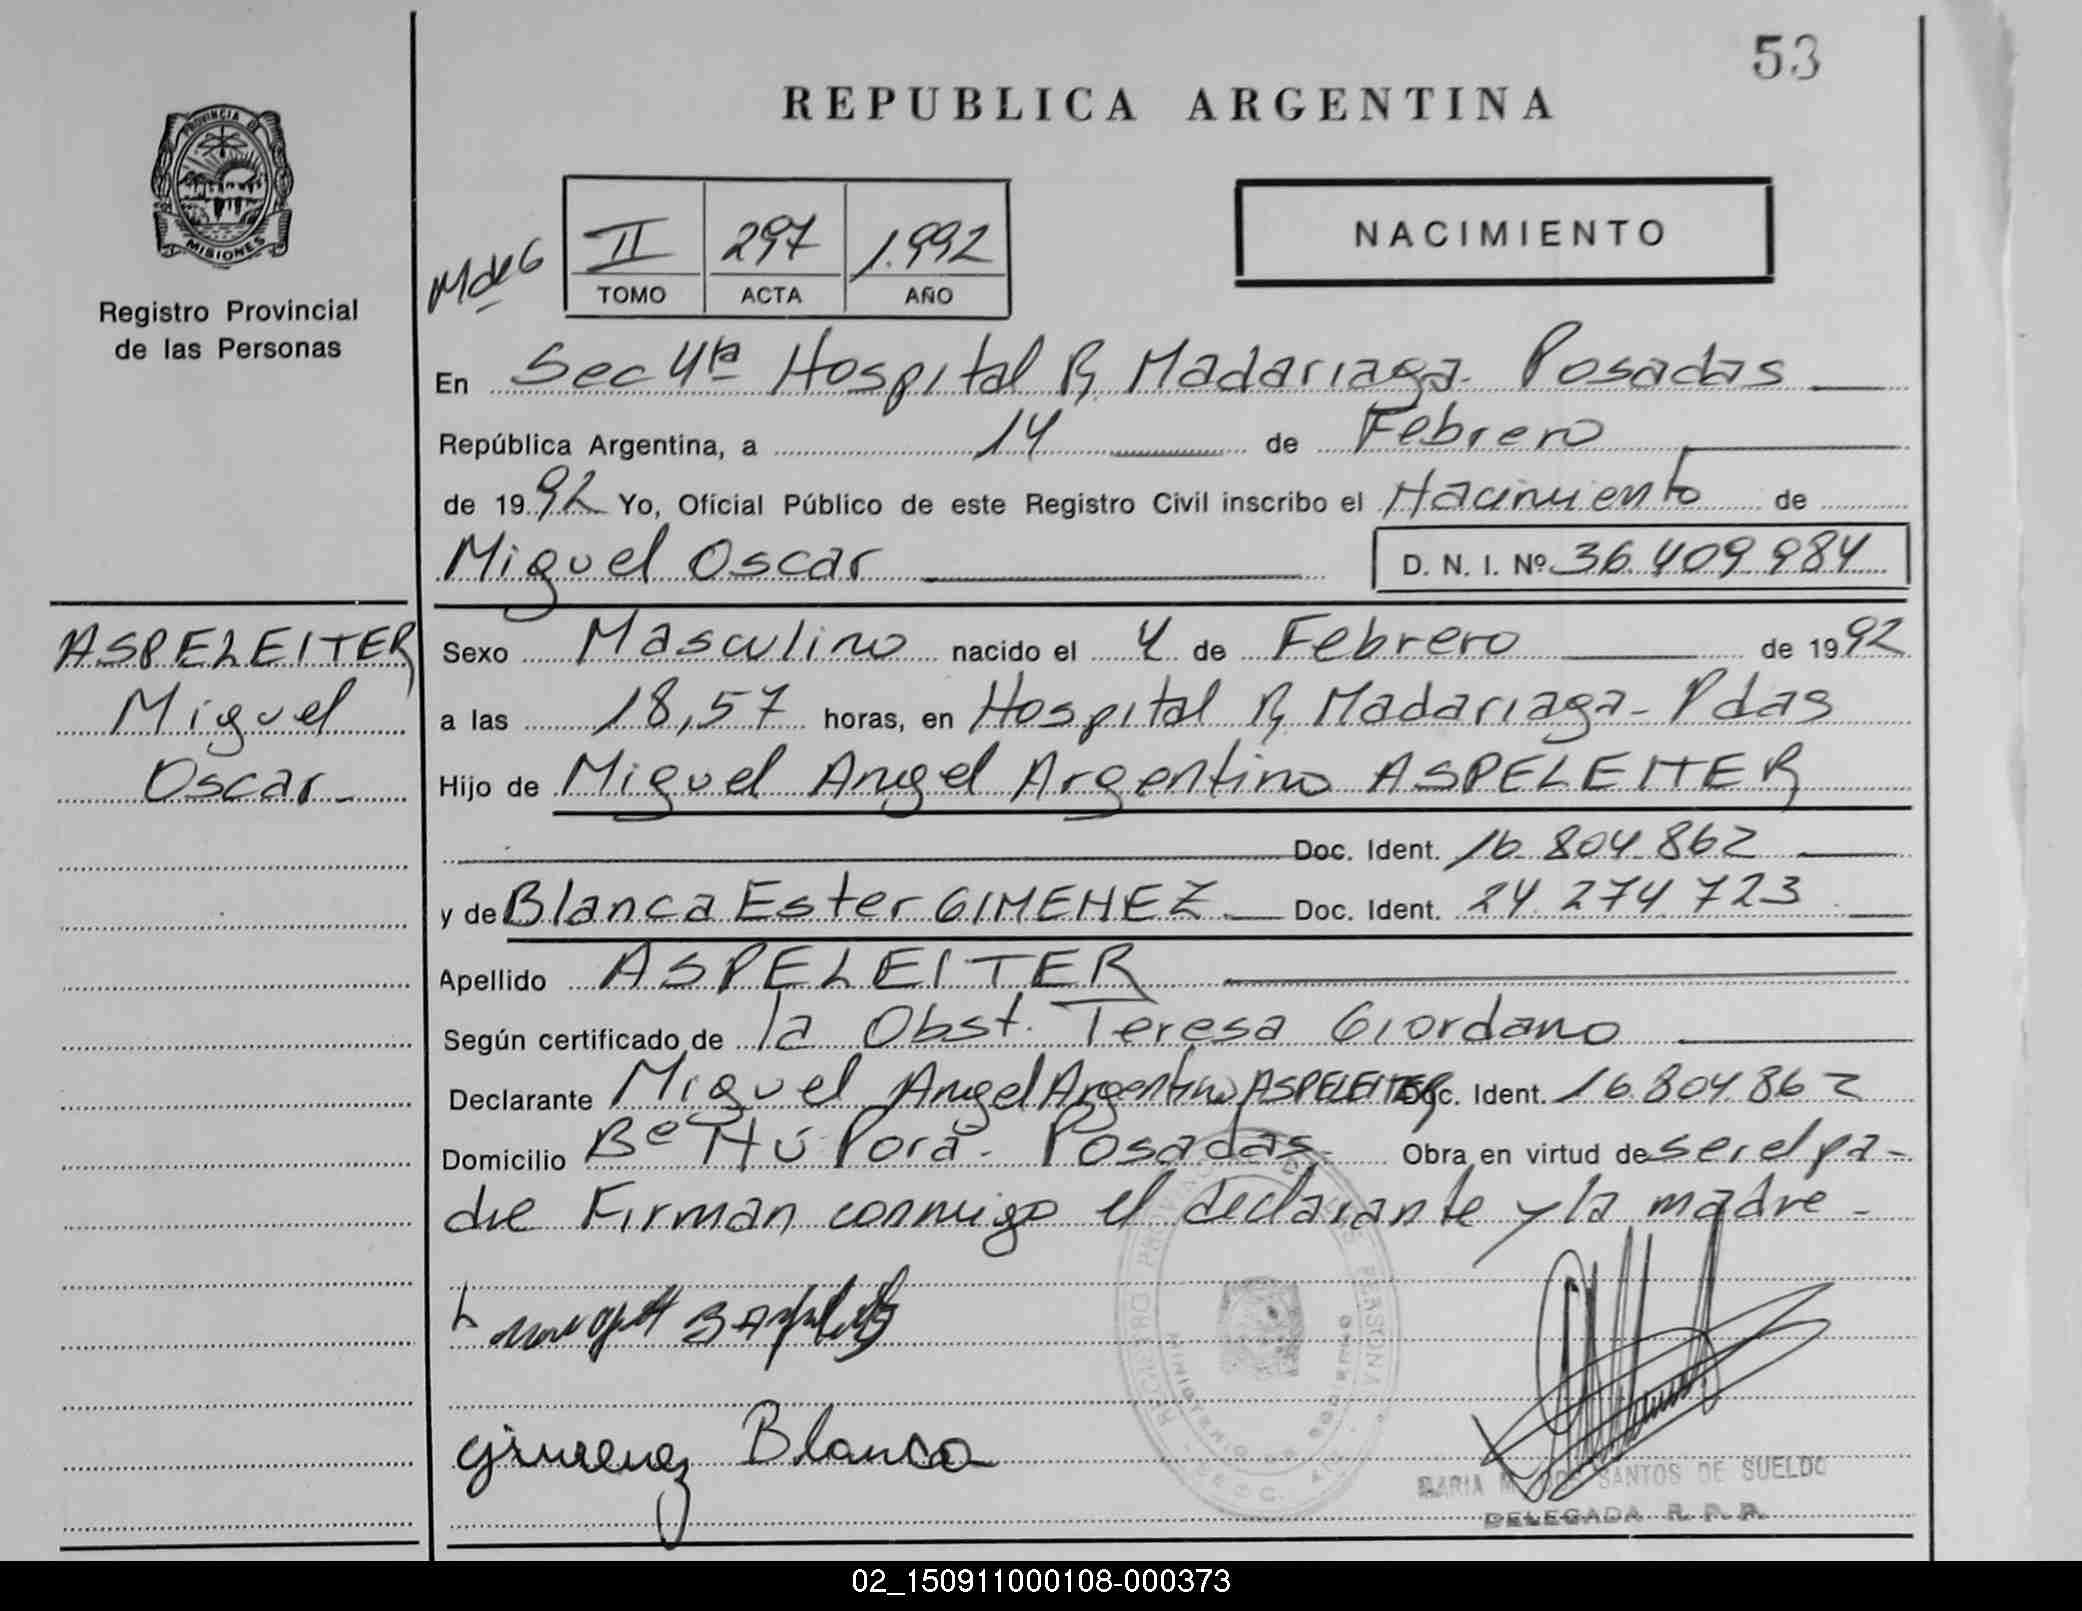 53
REPUBLICA ARGENTINA
PROVINCIA DE
MISIONES
Registro Provincial
de las Personas
M de G
II 297 1.992
TOMO ACTA AÑO
NACIMIENTO
En Sec 4ta Hospital R. Madariaga - Posadas
República Argentina, a 14 de Febrero
de 1992 Yo, Oficial Público de este Registro Civil inscribo el Nacimiento de
Miguel Oscar D. N. I. Nº 36.409.984
ASPELEITER
Miguel
Oscar -
Sexo Masculino nacido el 4 de Febrero de 1992
a las 18,57 horas, en Hospital R. Madariaga - Pdas
Hijo de Miguel Angel Argentino ASPELEITER
Doc. Ident. 16.804.862
y de Blanca Ester GIMENEZ Doc. Ident. 24.274.723
Apellido ASPELEITER
Según certificado de la Obst. Teresa Giordano
Declarante Miguel Angel Argentino ASPELEITER Doc. Ident. 16.804.862
Domicilio Bº Ñú Porá - Posadas - Obra en virtud de ser el pa-
dre Firman conmigo el declarante y la madre -
Gimenez Blanca
REGISTRO PROVINCIAL DE LAS PERSONAS
MINISTERIO DE GOBIERNO
MARIA M. DOS SANTOS DE SUELDO
DELEGADA R. P. P.
02_150911000108-000373